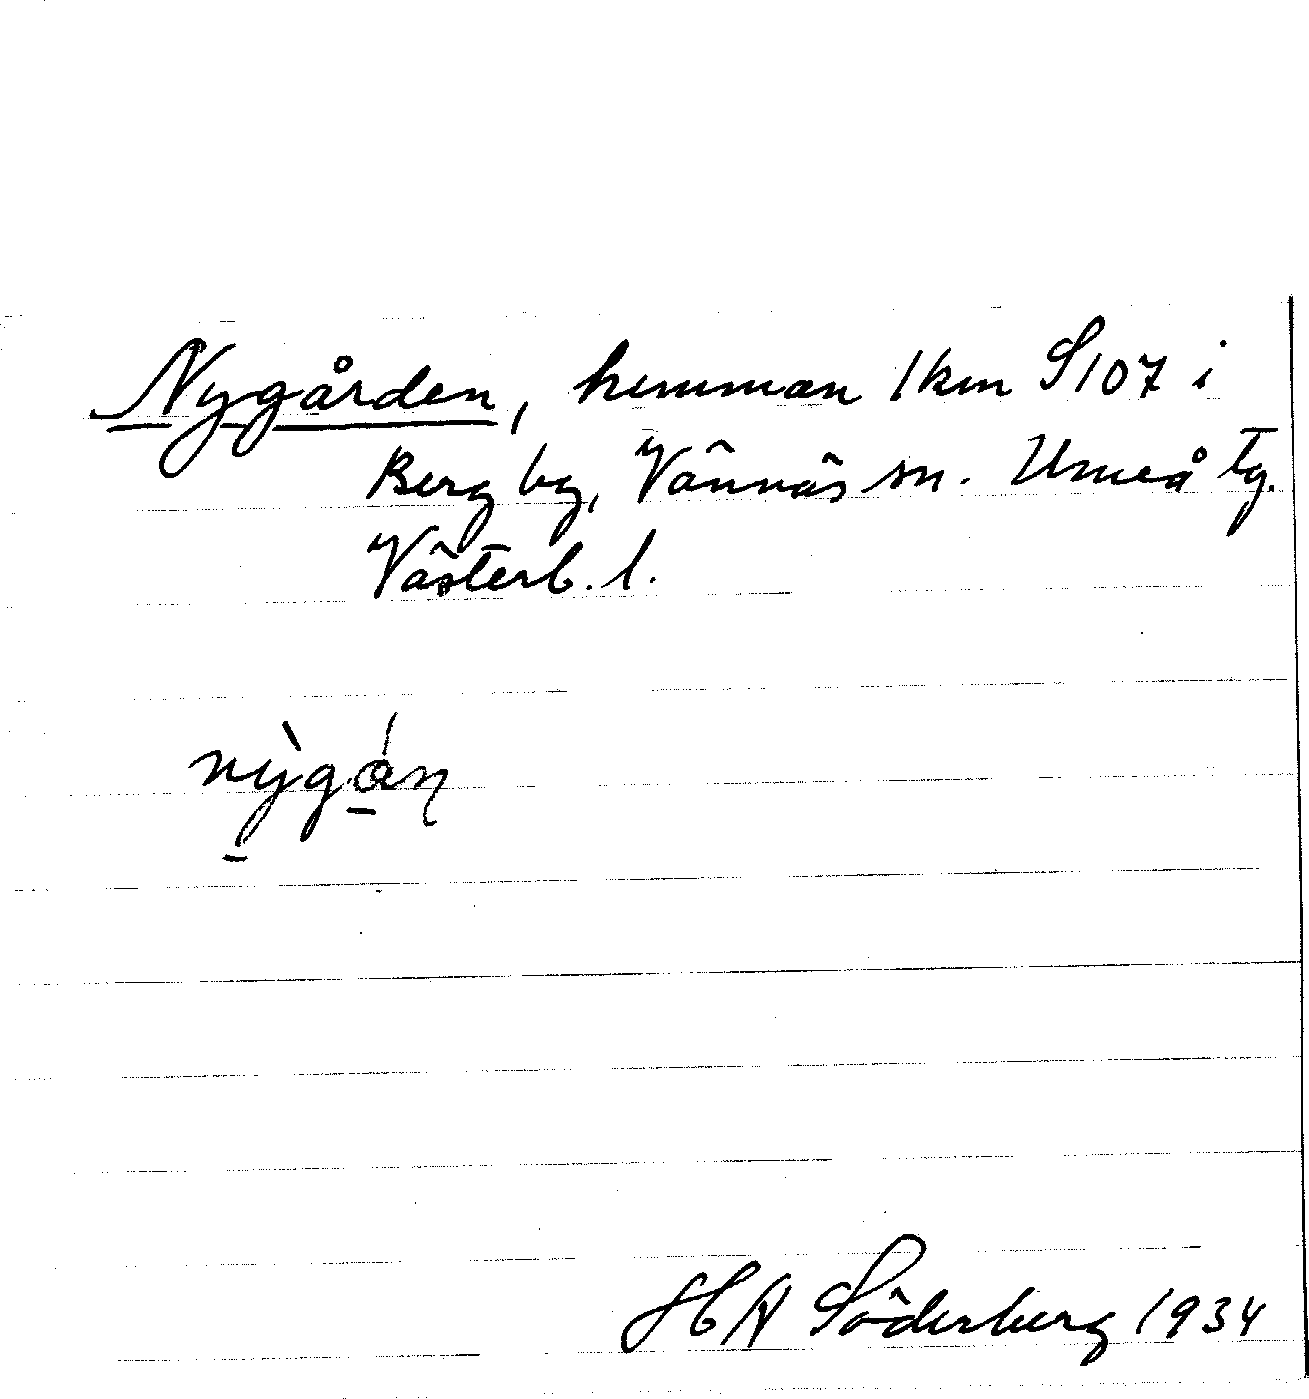 Nygården, hemman 1 km S 107 i
Berg by, Vännäs sn. Umeå tg.
Västerb. l.
nỳ̱gá̱ɳ
HA Söderberg 1934